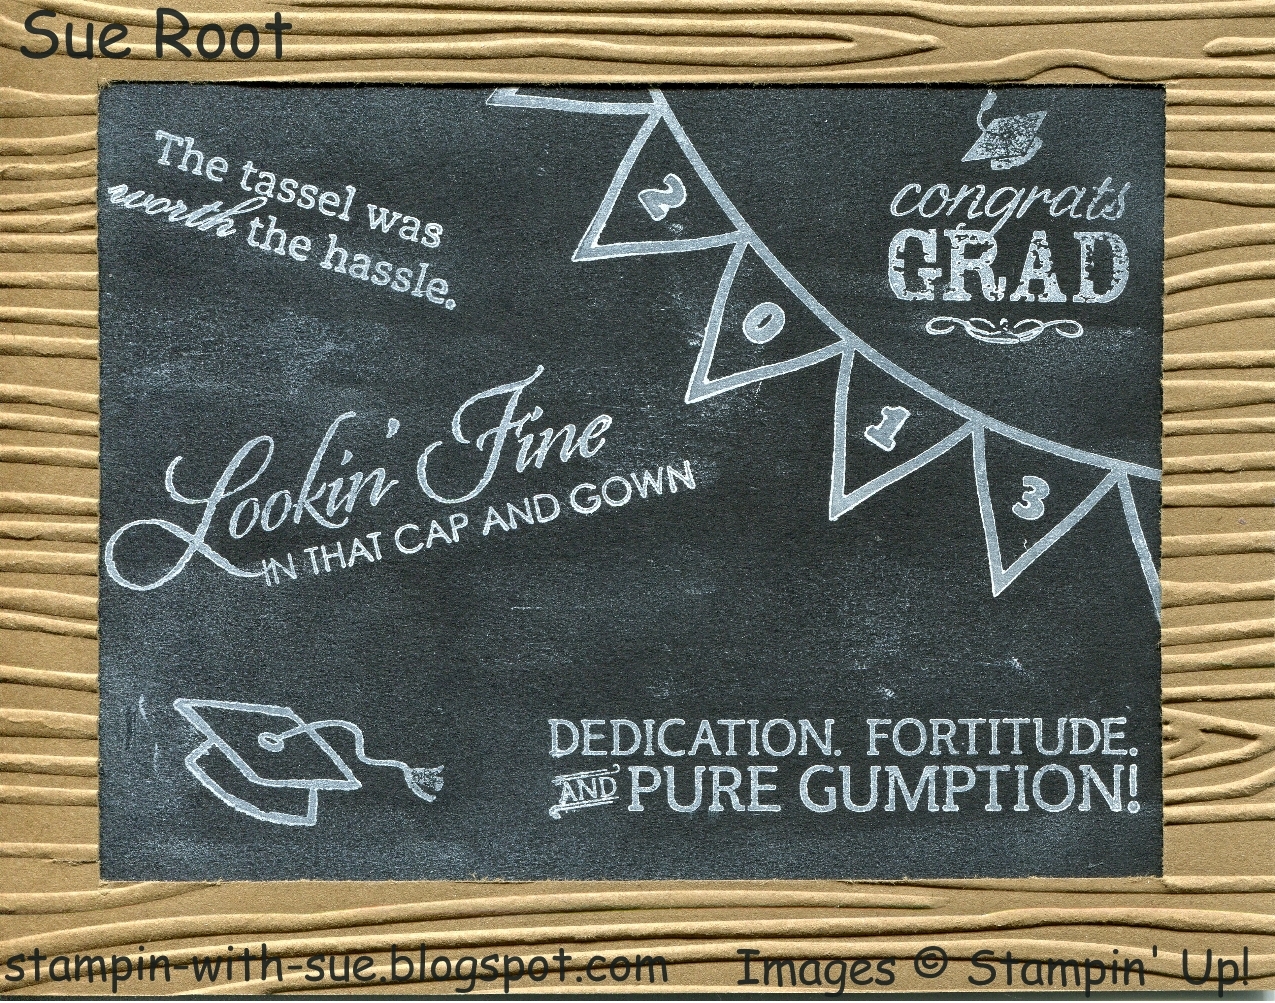 Sue Root
The tassel was
worth the hassle.
2
0
1
3
congrats
GRAD
Lookin' Fine
IN THAT CAP AND GOWN
DEDICATION. FORTITUDE.
AND PURE GUMPTION!
stampin-with-sue.blogspot.com
Images © Stampin' Up!